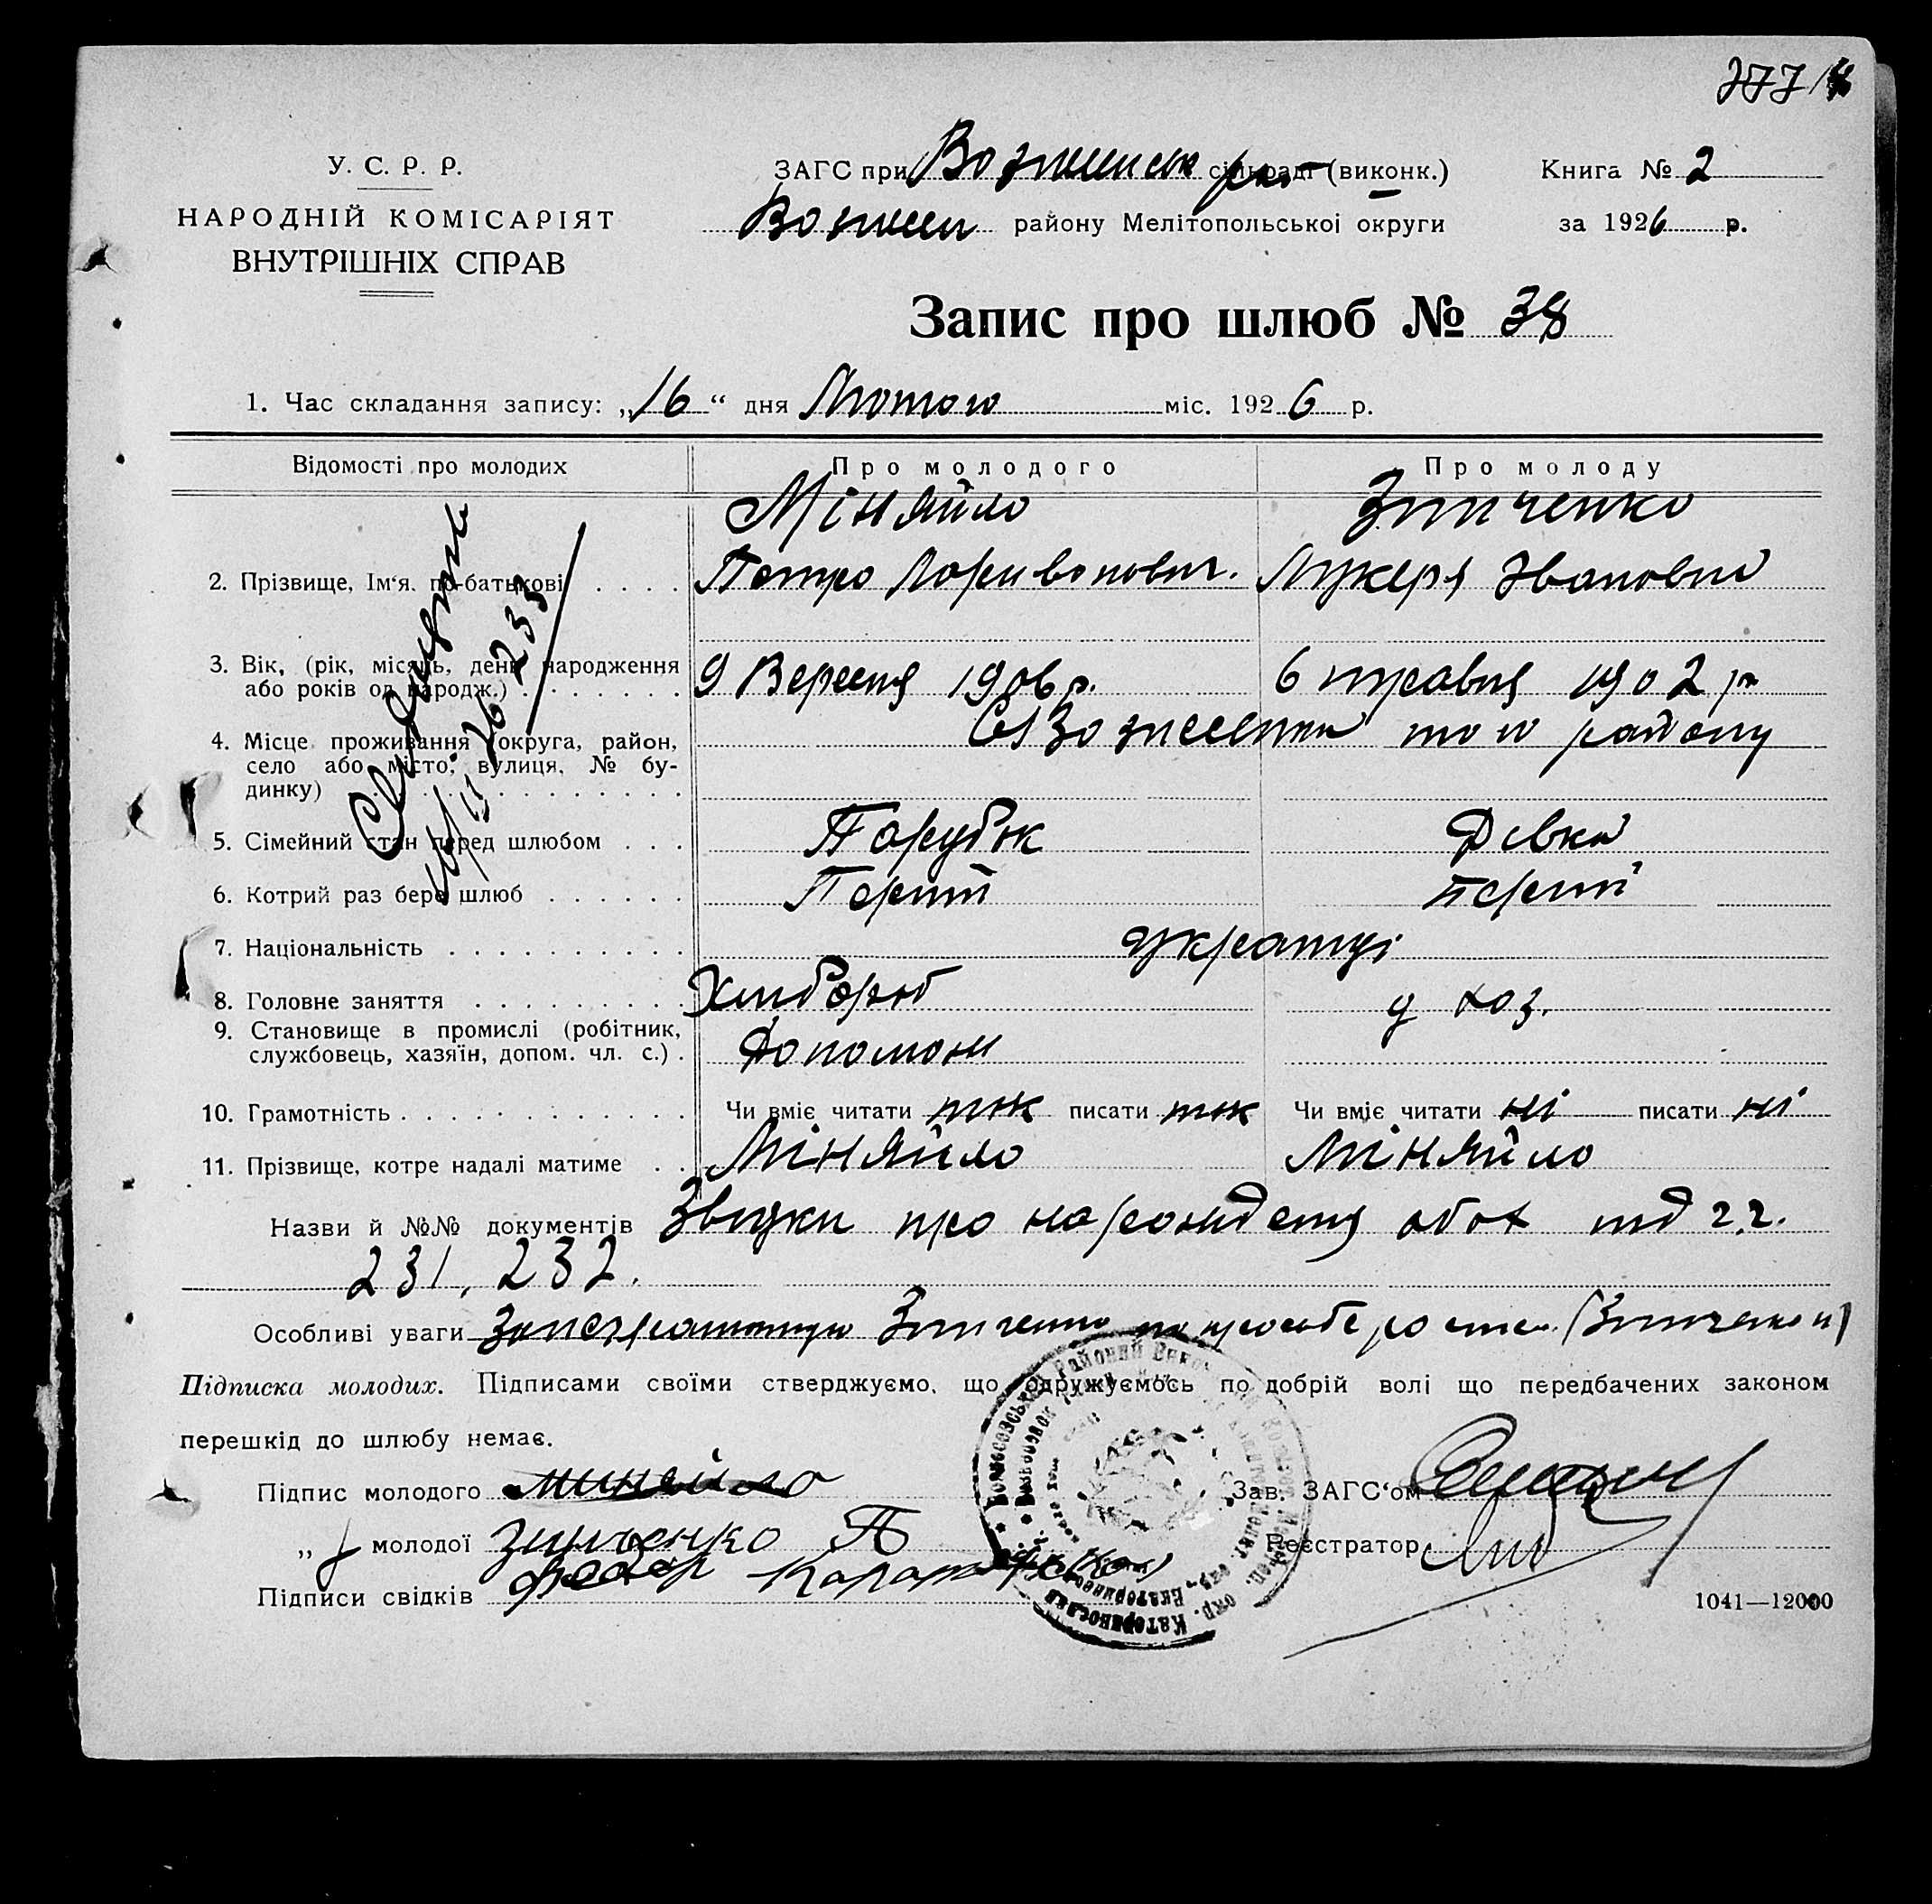 277
У. С. Р. Р.
НАРОДНІЙ КОМІСАРІЯТ
ВНУТРІШНІХ СПРАВ
ЗАГС при сільраді (виконк.)
району Мелітопольськоі округи
Книга № 2
за 1926 р.
Запис про шлюб № 38
1. Час складання запису: „16“ дня Лютого міс. 1926 р.
Відомості про молодих
Про молодого
Про молоду
2. Прізвище, Ім‘я. по-батькові
Міняйло
Петро
Зінченко
Лукеря Івановна
3. Вік, (рік, місяць, день народження
або років од народж.)
9 Вересня 1906 р.
6 травня 1902 р
4. Місце проживання (округа, район,
село або місто, вулиця, № бу-
динку)
того району
5. Сімейний стан перед шлюбом
Парубок
Дівка
6. Котрий раз бере шлюб
Перший
перший
7. Національність
українці
8. Головне заняття
Хлібороб
д хоз.
9. Становище в промислі (робітник,
службовець, хазяїн, допом. чл. с.)
Допомож
10. Грамотність
Чи вміє читати так писати так
Чи вміє читати ні писати ні
11. Прізвище, котре надалі матиме
Міняйло
Міняйло
Назви й №№ документів Звідки про народження обох під
231, 232.
Особливі уваги Зінченко
Підписка молодих. Підписами своїми стверджуємо, що одружуємось по добрій волі що передбачених законом
перешкід до шлюбу немає.
Підпис молодого
„ молодої Зинченко П
Підписи свідків Федор
Зав. ЗАГС‘ом
Реєстратор
1041—12000